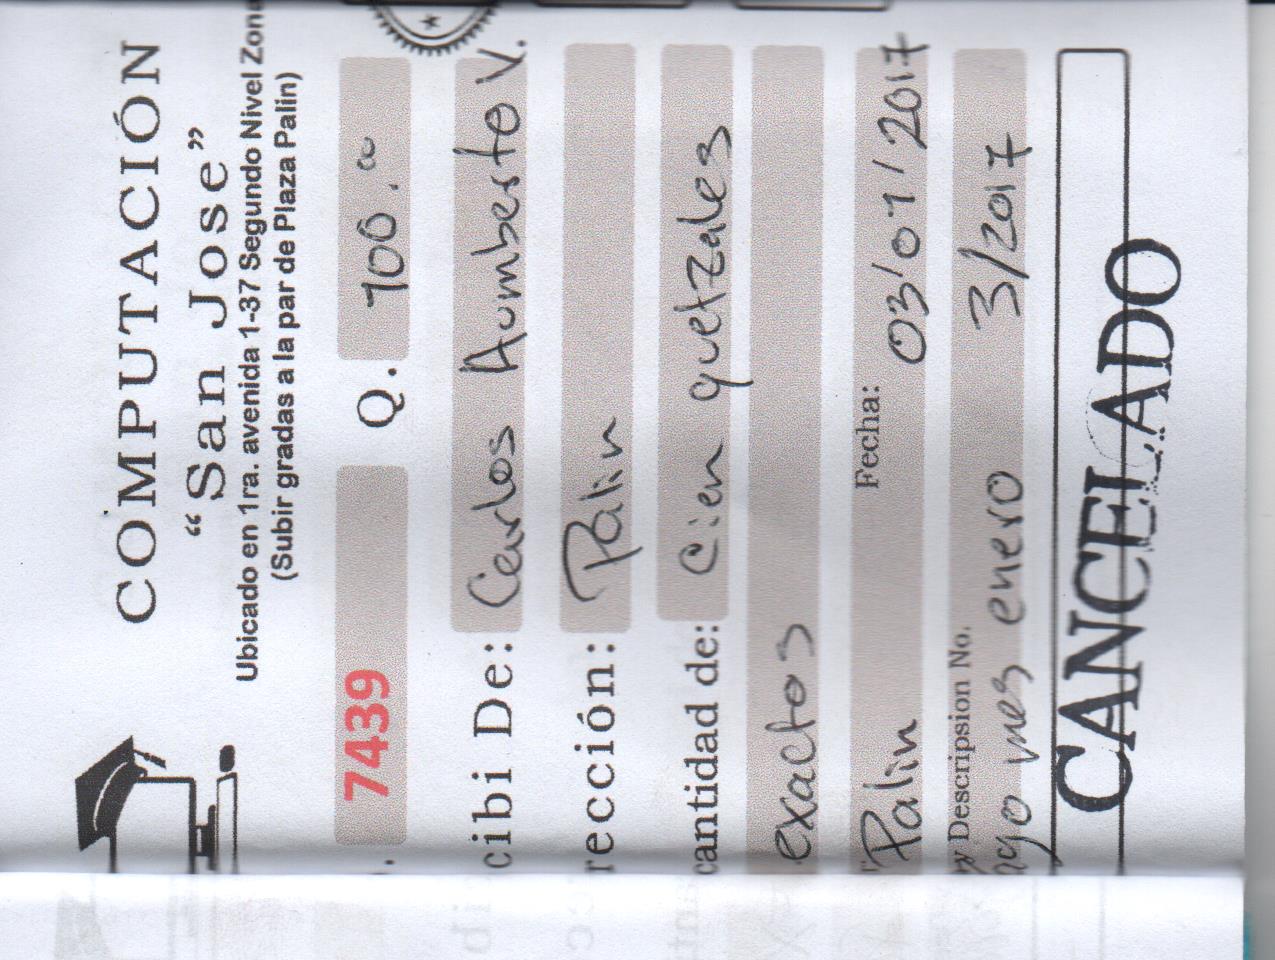 COMPUTACIÓN
“San Jose”
Ubicado en 1ra. avenida 1-37 Segundo Nivel Zona
(Subir gradas a la par de Plaza Palin)
. 7439 Q. 100.00
cibi De: Carlos Humberto V.
rección: Palin
cantidad de: Cien quetzales
exactos
Palin Fecha: 03/01/2017
y Descripsion No.
ago mes enero 3/2017
CANCELADO